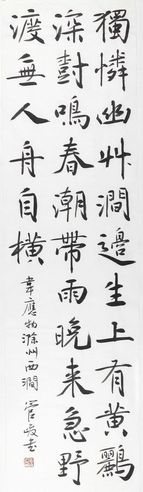 獨憐幽艸澗邊生上有黄鸝
深對鳴春潮帶雨晚来急野
渡無人舟自橫
韋應物滁州西澗 管峻書